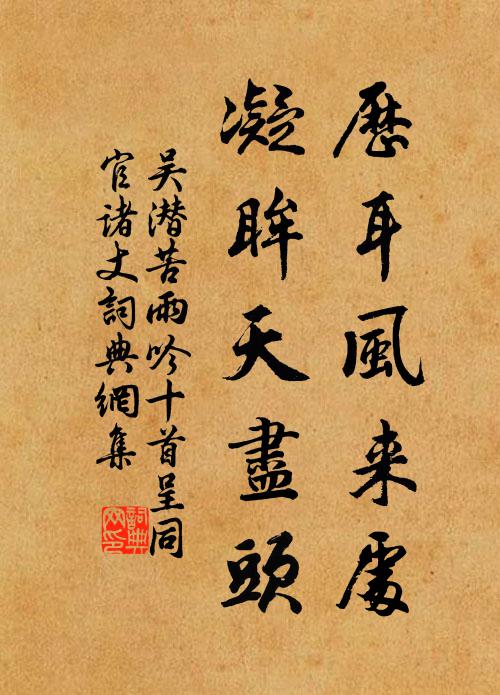 歷耳風来處
凝眸天盡頭
吴潛苦雨吟十首呈同
官诸丈詞典網集
詞典網印